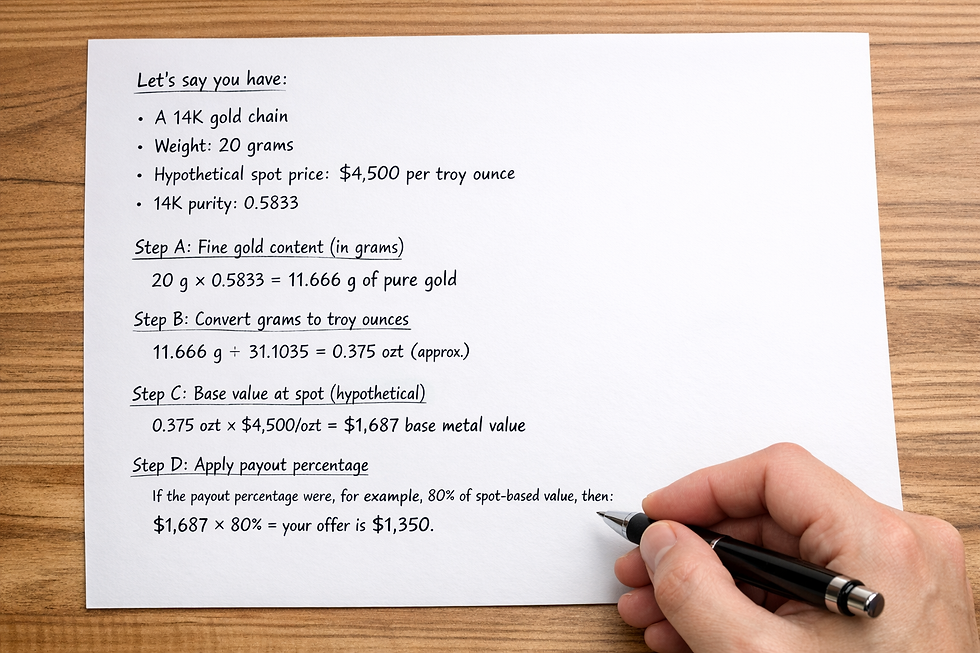 Let's say you have:
• A 14K gold chain
• Weight: 20 grams
• Hypothetical spot price: $4,500 per troy ounce
• 14K purity: 0.5833
Step A: Fine gold content (in grams)
20 g × 0.5833 = 11.666 g of pure gold
Step B: Convert grams to troy ounces
11.666 g ÷ 31.1035 = 0.375 ozt (approx.)
Step C: Base value at spot (hypothetical)
0.375 ozt × $4,500/ozt = $1,687 base metal value
Step D: Apply payout percentage
If the payout percentage were, for example, 80% of spot-based value, then:
$1,687 × 80% = your offer is $1,350.